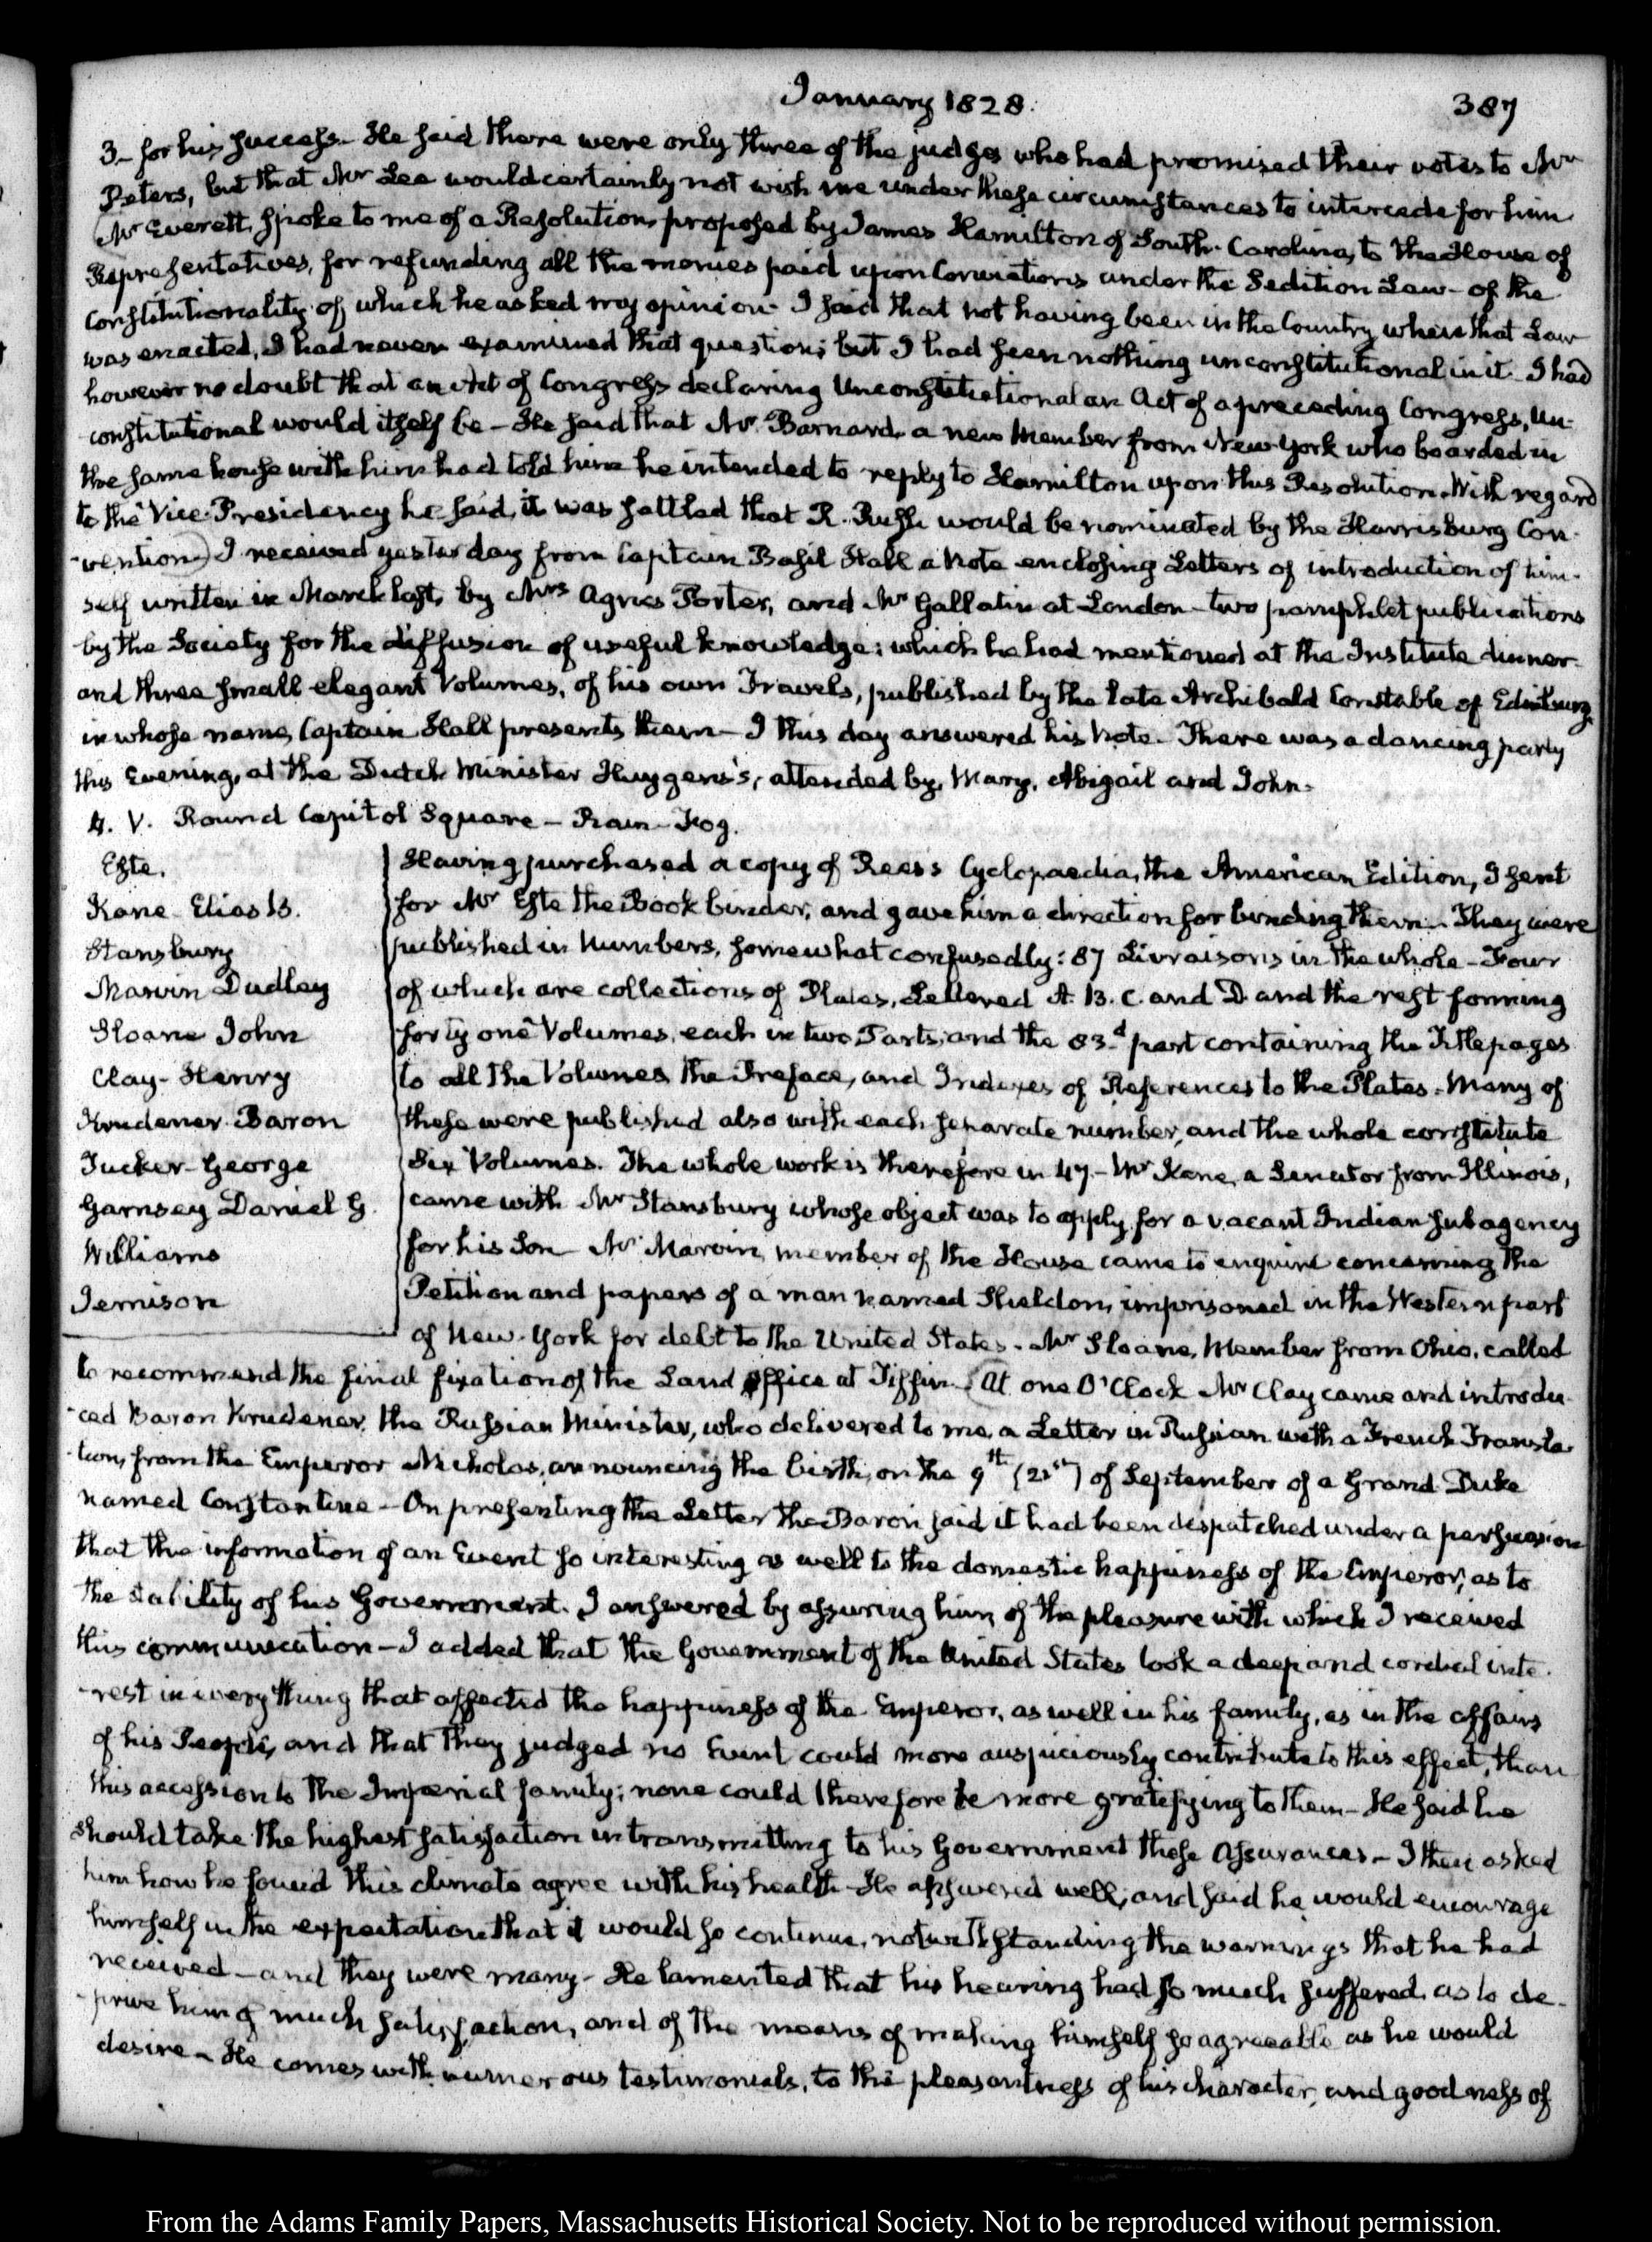 January 1828.
387
3- for his success- He said there were only three of the judges who had promised their votes to Mr
Peters, but that Mr Lee would certainly not wish me under these circumstances to intercede for him
Mr Everett, spoke to me of a Resolution, proposed by James Hamilton of South-Carolina, to the House of
Representatives, for refunding all the monies paid upon Convictions under the Sedition Law- of the
Constitutionality of which he asked my opinion- I said that not having been in the Country when that Law
was enacted, I had never examined that question; but I had seen nothing unconstitutional in it- I had
however no doubt that an Act of Congress declaring Unconstitutional an Act of a preceding Congress, Un-
constitutional would itself be- He said that Mr Barnard, a new Member from New York who boarded in
the same house with him had told him he intended to reply to Hamilton upon this Resolution. With regard
to the Vice-Presidency he said, it was settled that R. Rush would be nominated by the Harrisburg Con-
-vention) I received yesterday from Captain Basil Hall a Note enclosing Letters of introduction of him-
self written in March last, by Mrs Agnes Porter, and Mr Gallatin at London- two pamphlet publications
by the Society for the diffusion of useful knowledge; which he had mentioned at the Institute dinner-
and three small elegant Volumes, of his own Travels, published by the late Archibald Constable of Edinburg,
in whose name, Captain Hall presents them- I this day answered his Note- There was a dancing party
this Evening, at the Dutch Minister Huygens's, attended by, Mary, Abigail and John-
4. V. Round Capitol Square- Rain- Fog.
Este.
Kane- Elias K.
Stansbury
Marvin Dudley
Sloane John
Clay- Henry
Krudener- Baron
Tucker- George
Garnsey Daniel G.
Williams
Jemison
Having purchased a copy of Rees's Cyclopaedia, the American Edition, I sent
for Mr Este the Book binder, and gave him a direction for binding them- They were
published in Numbers, somewhat confusedly: 87 Livraisons in the whole- Four
of which are collections of Plates, Lettered A. B. C. and D. and the rest forming
forty one Volumes, each in two Parts, and the 83.d part containing the Title pages
to all the Volumes, the Preface, and Indexes of References to the Plates. Many of
these were published also with each separate number, and the whole constitute
Six Volumes. The whole work is therefore in 47- Mr Kane, a Senator from Illinois,
came with Mr Stansbury whose object was to apply for a vacant Indian subagency
for his Son- Mr Marvin, member of the House came to enquire concerning the
Petition and papers of a man named Sheldon, imprisoned in the Western part
of New-York for debt to the United States- Mr Sloane, Member from Ohio, called
to recommend the final fixation of the Land Office at Tiffin- (At one O'Clock Mr Clay came and introdu-
-ced Baron Krudener, the Russian Minister, who delivered to me, a Letter in Russian with a French Transla-
-tion, from the Emperor Nicholas, announcing the birth, on the 9th (21st) of September of a Grand Duke
named Constantine- On presenting the Letter the Baron said it had been despatched under a persuasion
that the information of an Event so interesting as well to the domestic happiness of the Emperor, as to
the stability of his Government. I answered by assuring him, of the pleasure with which I received
this communication- I added that the Government of the United States took a deep and cordial inte-
-rest in every thing that affected the happiness of the Emperor, as well in his family, as in the affairs
of his People, and that they judged no Event could more auspiciously contribute to this effect, than
this accession to the Imperial family; none could therefore be more gratifying to them- He said he
should take the highest satisfaction in transmitting to his Government these Assurances- I then asked
him how he found this climate agree with his health- He answered well, and said he would encourage
himself in the expectation that it would so continue, notwithstanding the warnings that he had
received- and they were many- He lamented that his hearing had so much suffered, as to de-
-prive him of much satisfaction, and of the means of making himself so agreeable as he would
desire- He comes with numerous testimonials, to the pleasantness of his character, and goodness of
From the Adams Family Papers, Massachusetts Historical Society. Not to be reproduced without permission.